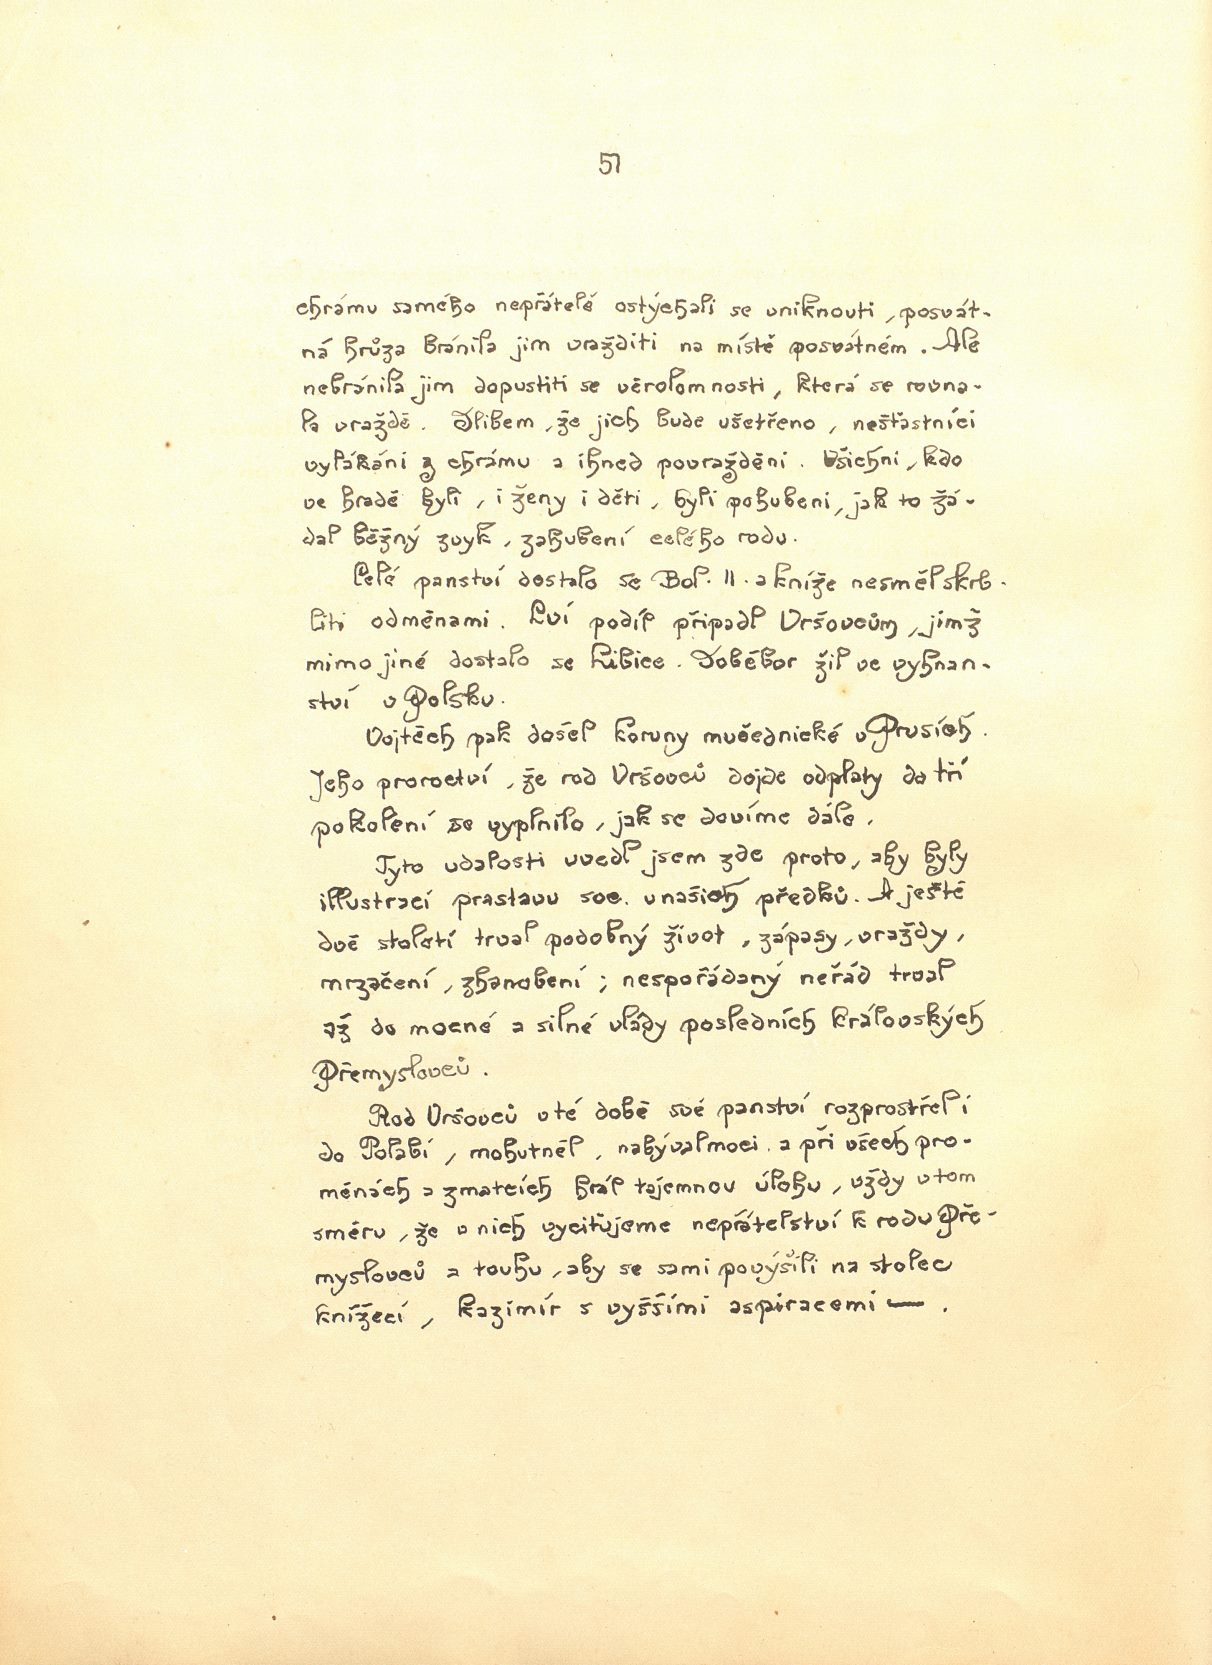 51
chrámu samého nepřátelé ostýchali se vniknouti, posvát-
ná hrůza bránila jim vražditi na místě posvátném. Ale
nebránila jim dopustiti se věrolomnosti, která se rovna-
la vraždě. Slibem, že jich bude ušetřeno, nešťastníci
vylákáni z chrámu a ihned povražděni. Všichni, kdo
ve hradě byli, i ženy i děti, byli pohubeni, jak to žá-
dal běžný zvyk, zahubení celého rodu.
Celé panství dostalo se Bol. II. a kníže nesměl skrb-
liti odměnami. Lví podíl připadl Vršovcům, jimž
mimo jiné dostalo se Libice. Soběbor žil ve vyhnan-
ství v Polsku.
Vojtěch pak došel koruny mučednické v Prusích.
Jeho proroctví, že rod Vršovců dojde odplaty do tří
pokolení se vyplnilo, jak se dovíme dále.
Tyto události uvedl jsem zde proto, aby byly
illustrací prastavu soc. u našich předků. A ještě
dvě století trval podobný život, zápasy, vraždy,
mrzačení, zhanobení; nespořádaný neřád trval
až do mocné a silné vlády posledních královských
Přemyslovců.
Rod Vršovců v té době své panství rozprostřel i
do Polabí, mohutněl, nabýval moci a při všech pro-
měnách a zmatcích hrál tajemnou úlohu, vždy v tom
směru, že v nich vyciťujeme nepřátelství k rodu Pře-
myslovců a touhu, aby se sami povýšili na stolec
knížecí, kazimír s vyššími aspiracemi — .